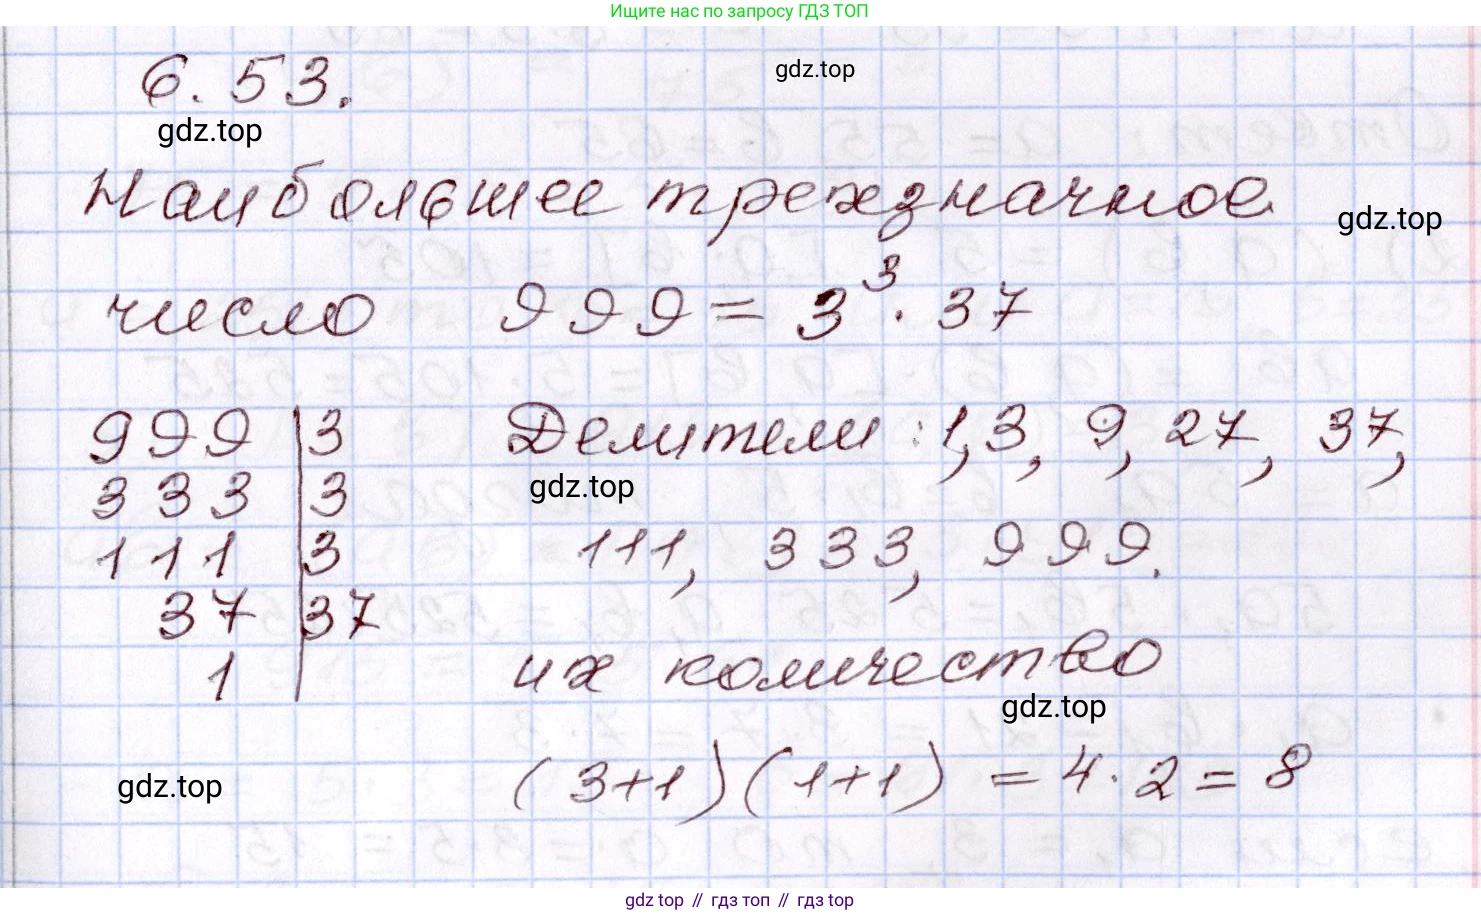 Ищите нас по запросу ГДЗ ТОП
6.53.
gdz.top
gdz.top
Наибольшее трехзначное
gdz.top
число 999 = 3³ · 37
999 | 3
333 | 3
111 | 3
37 | 37
1
Делители: 1, 3, 9, 27, 37,
gdz.top
111, 333, 999.
их количество
gdz.top
(3+1)(1+1) = 4 · 2 = 8
gdz.top
gdz top // гдз топ // гдз top